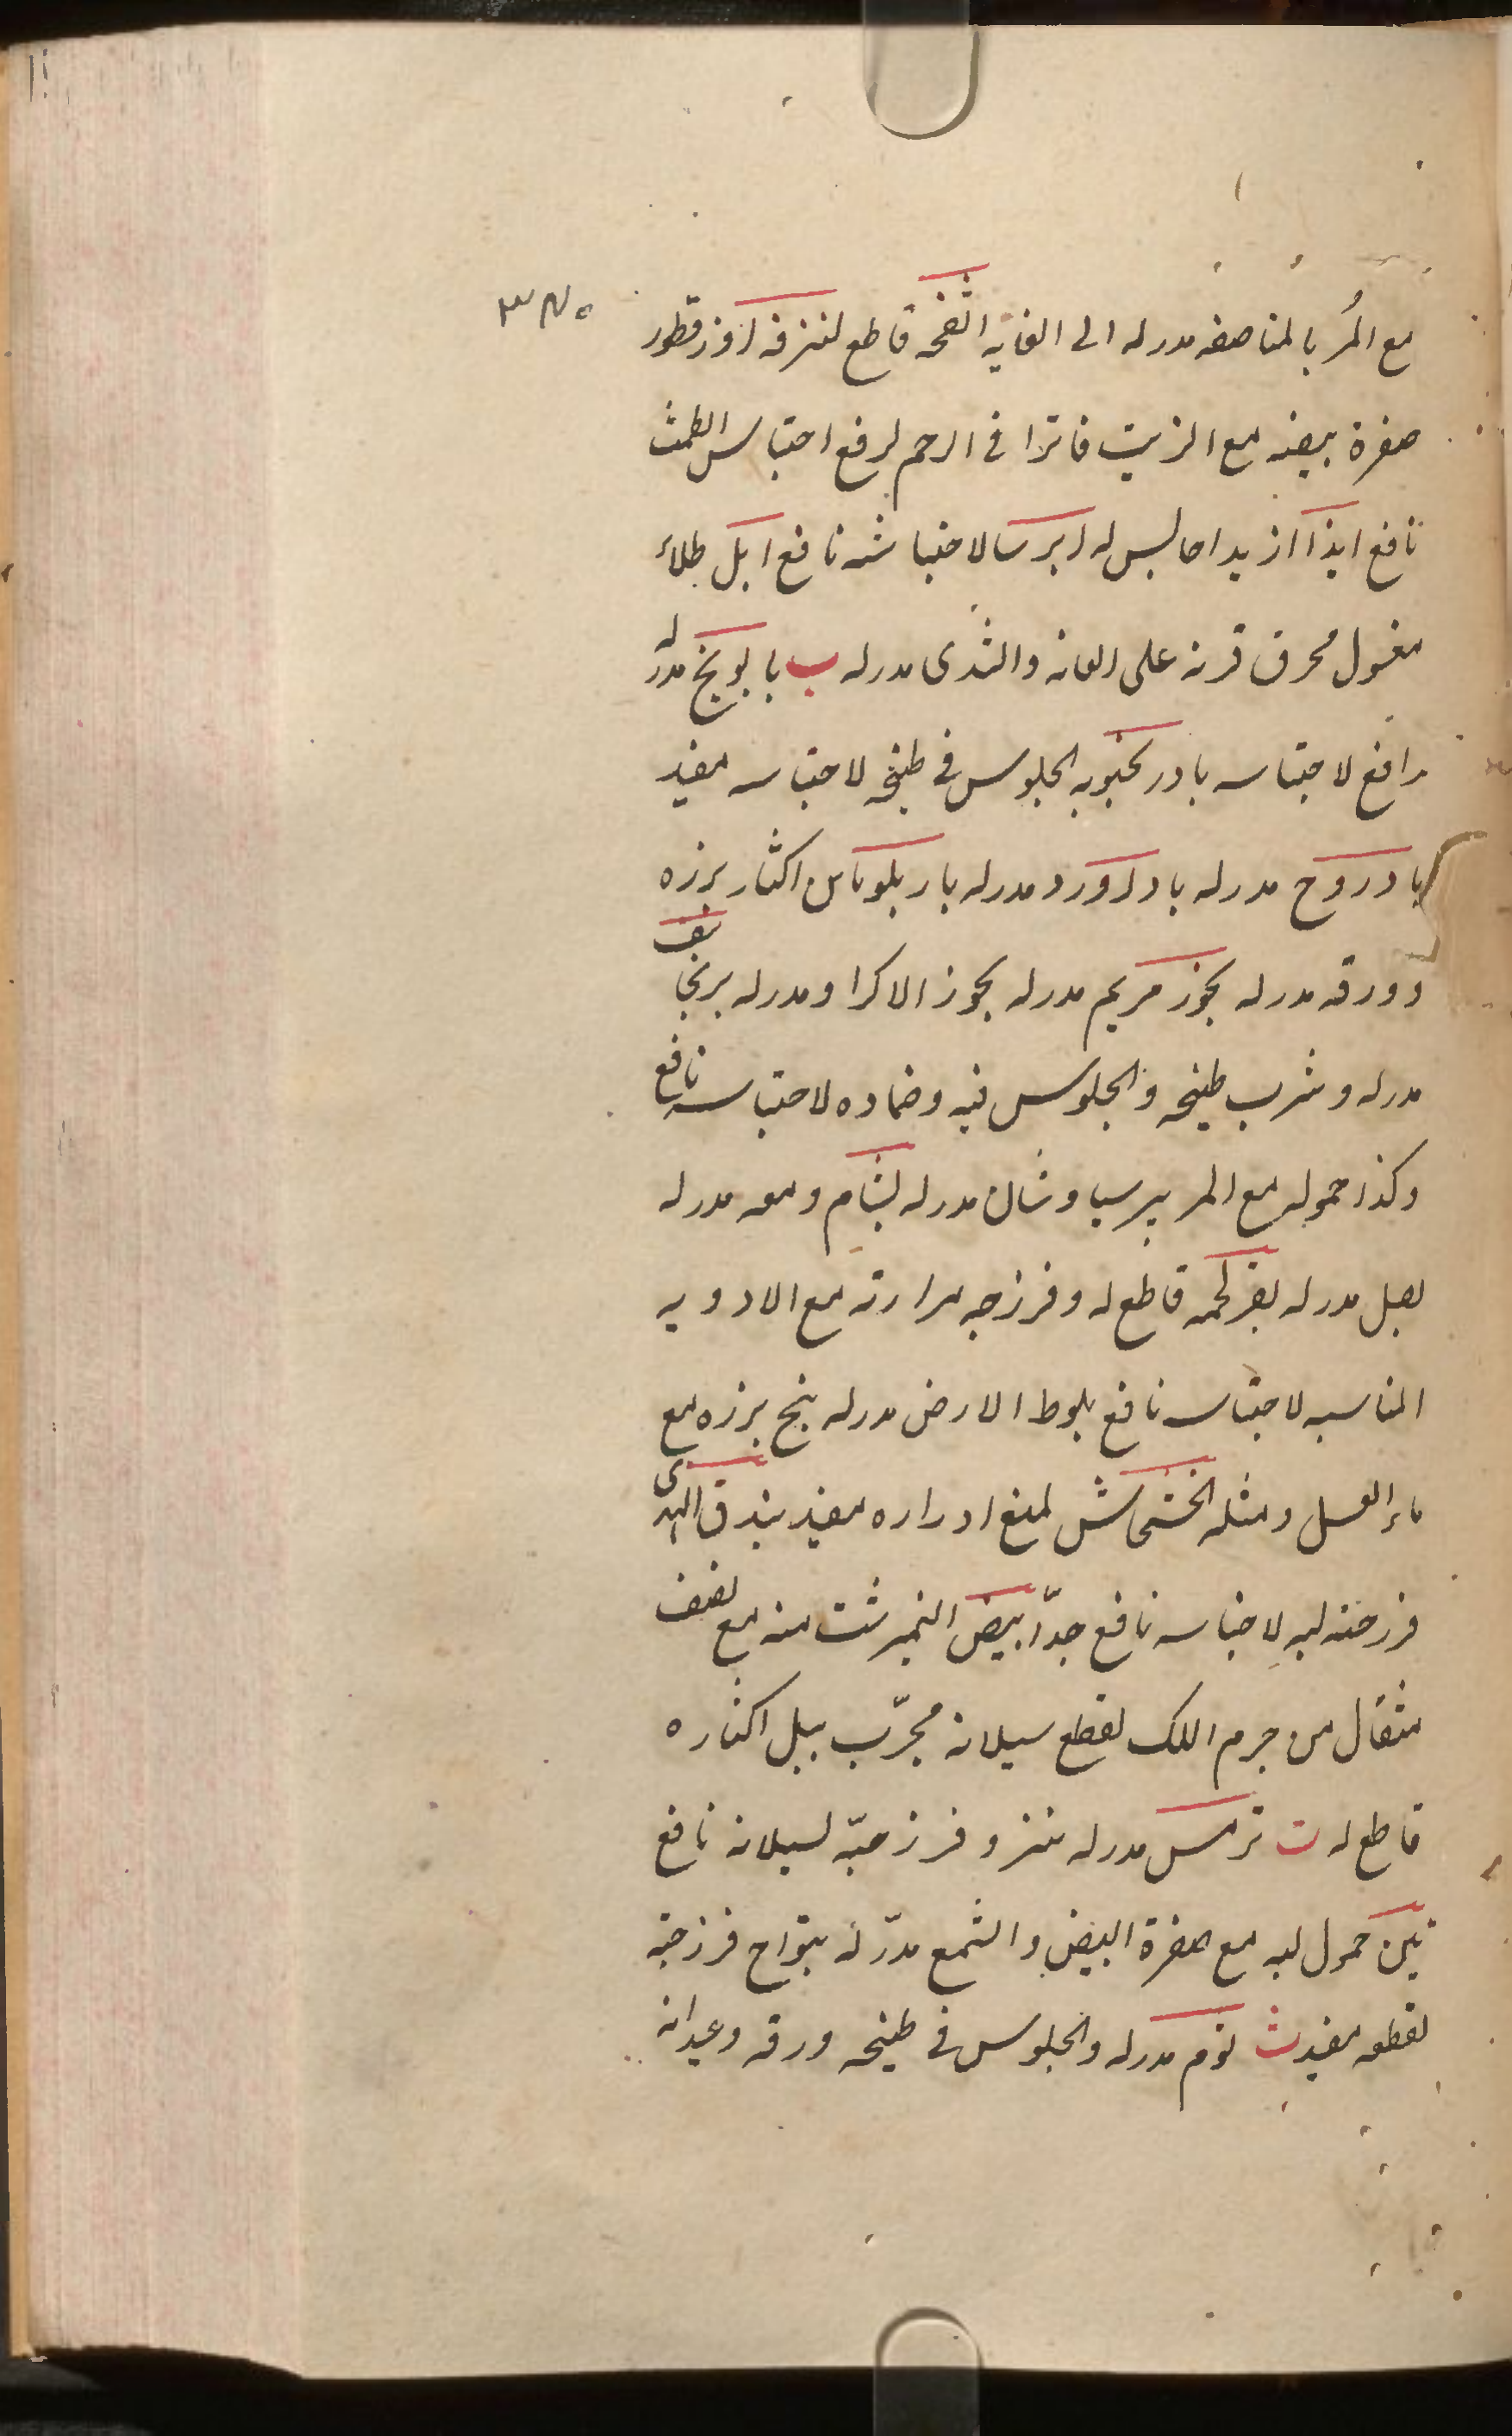 مع المُر بالمناصفه مدر له الى الغايه انفحه قاطع لنزفه اوز قطور
صفرة بيضه مع الزيت فاترا فى الرحم لرفع احتباس الطمث
نافع ايذا ازيد احابس له ايرسا لاحتباسه نافع ايل طلاء
مغسول محرق قرنه على العانه والثدى مدر له ب بابونج مدر له
رافع لاحتباسه بادرنجبويه الجلوس فى طبخه لاحتباسه مفيد
بادروج مدر له باداورد مدر له باربلوماس اكثار بزره
وورقه مدر له بخور مريم مدر له بخور الاكراد مدر له برنجاسف
مدر له وشرب طبخه والجلوس فيه وضماده لاحتباسه نافع
وكذا حموله مع المر برسياوشان مدر له بشام ومعه مدر له
بصل مدر له بقر لحمه قاطع له وفرزجه مرارته مع الادويه
المناسبه لاحتباسه نافع بلوط الارض مدر له بنج بزره مع
ماء العسل ومثله الخشخاش لمنع ادراره مفيد بندق الهندى
فرزجته لبه لاحتباسه نافع جدّا بيض النمبرشت منه مع نصف
مثقال من جرم اللك لقطع سيلانه مجرّب بيل اكثاره
قاطع له ت ترمس مدر له فرزجته لسيلانه نافع
تين حمول لبه مع صفرة البيض والشمع مدرّ له فرزجته
لقطعه مفيد ث ثوم مدر له والجلوس فى طبخه ورقه وعيدانه